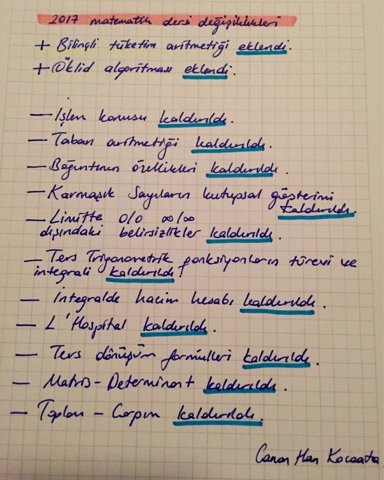 2017 matematik dersi değişiklikleri
+ Bilinçli tüketim aritmetiği eklendi.
+ Öklid algoritması eklendi.
— İşlem konusu kaldırıldı.
— Taban aritmetiği kaldırıldı.
— Bağıntının özellikleri kaldırıldı.
— Karmaşık Sayıların kutupsal gösterimi
kaldırıldı.
— Limitte 0/0 ∞/∞
dışındaki belirsizlikler kaldırıldı.
— Ters Trigonometrik fonksiyonların türevi ve
integrali kaldırıldı!
— İntegralde hacim hesabı kaldırıldı.
— L'Hospital kaldırıldı.
— Ters dönüşüm formülleri kaldırıldı.
— Matris-Determinant kaldırıldı.
— Toplam - Çarpım kaldırıldı.
Han